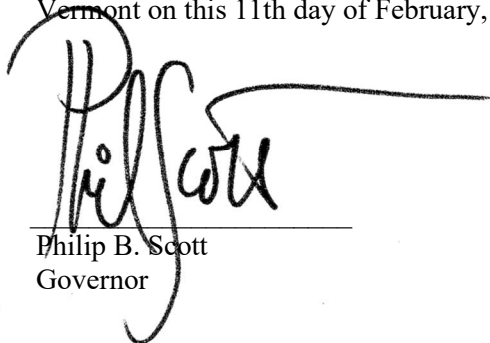 Vermont on this 11th day of February,
Phil Scott
Philip B. Scott
Governor